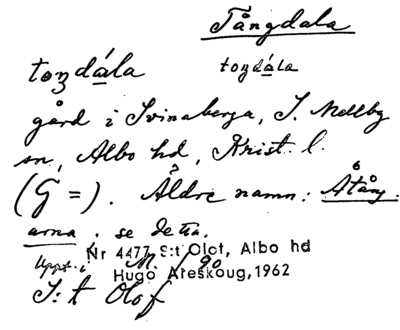 Tångdala
toŋdála toŋdála
gård i Svinaberga, S. Mellby
sn, Albo hd, Krist. l.
(G =). Äldre namn: Åtång-
arna, se detta.
Nr 4477 S:t Olof, Albo hd
Uppt. i M. / 90
Hugo Areskoug, 1962
S:t Olof